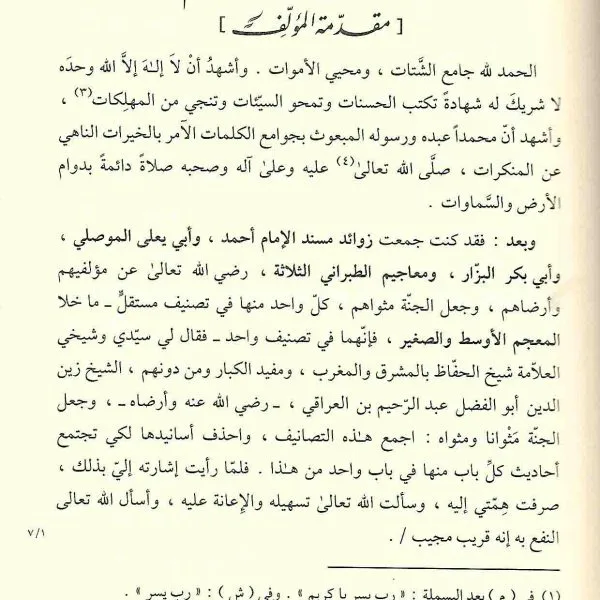 [ مقدّمة المؤلّف ]
الحمد لله جامع الشَّتات ، ومحيي الأموات . وأشهدُ أنْ لاَ إلـٰهَ إلاَّ الله وحدَه
لا شريكَ له شهادةً تكتب الحسنات وتمحو السيّئات وتنجي من المهلِكات(٣) ،
وأشهد أنّ محمداً عبده ورسوله المبعوث بجوامع الكلمات الآمر بالخيرات الناهي
عن المنكرات ، صلَّى الله تعالىٰ(٤) عليه وعلىٰ آله وصحبه صلاةً دائمةً بدوام
الأرض والسَّماوات .
وبعد : فقد كنت جمعت زوائد مسند الإمام أحمد ، وأبي يعلى الموصلي ،
وأبي بكر البزّار ، ومعاجيم الطبراني الثلاثة ، رضي الله تعالىٰ عن مؤلفيهم
وأرضاهم ، وجعل الجنّة مثواهم ، كلّ واحد منها في تصنيف مستقلٍّ ــ ما خلا
المعجم الأوسط والصغير ، فإنّهما في تصنيف واحد ــ فقال لي سيّدي وشيخي
العلاّمة شيخ الحفّاظ بالمشرق والمغرب ، ومفيد الكبار ومن دونهم ، الشيخ زين
الدين أبو الفضل عبد الرّحيم بن العراقي ، ــ رضي الله عنه وأرضاه ــ ، وجعل
الجنّة مَثْوانا ومثواه : اجمع هـٰذه التصانيف ، واحذف أسانيدها لكي تجتمع
أحاديث كلِّ باب منها في باب واحد من هـٰذا . فلمّا رأيت إشارته إليّ بذلك ،
صرفت هِمّتي إليه ، وسألت الله تعالىٰ تسهيله والإعانة عليه ، وأسأل الله تعالى
النفع به إنه قريب مجيب / . ٧/١
(١) في ( م ) بعد البسملة : « رب يسر يا كريم » . وفي ( ش ) : « رب يسر » .